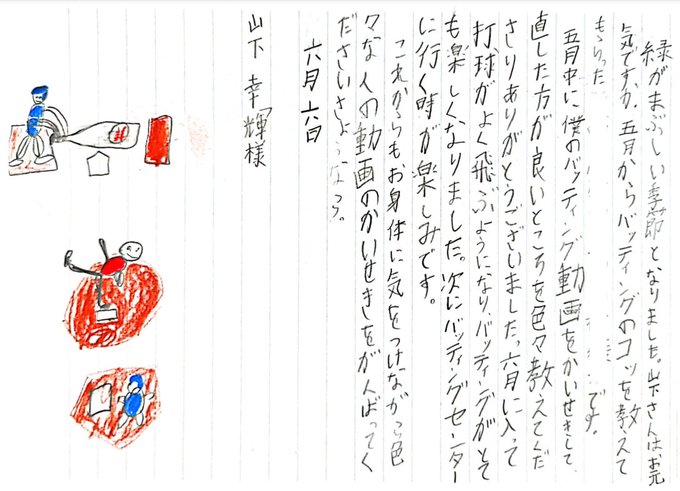 緑がまぶしい季節となりました。山下さんはお元
気ですか。五月からバッティングのコツを教えて
もらった です。
五月中に僕のバッティング動画をかいせきして、
直した方が良いところを色々教えてくだ
さりありがとうございました。六月に入って
打球がよく飛ぶようになり、バッティングがとて
も楽しくなりました。次にバッティングセンター
に行く時が楽しみです。
これからもお身体に気をつけながら色
々な人の動画のかいせきをがんばってく
ださいさようなら。
六月六日
山下幸輝様